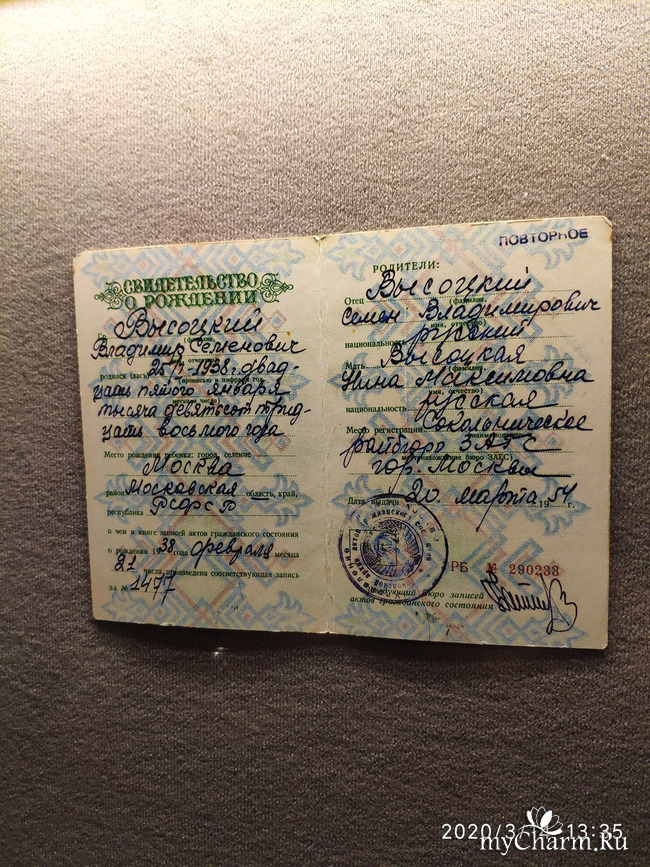 СВИДЕТЕЛЬСТВО
О РОЖДЕНИИ
Высоцкий
(фамилия,
Владимир Семенович
имя, отчество)
родился (вась) 25/I-1938г. двад-
прописью и цифрами год,
цать пятого января
тысяча девятсот трид-
цать восьмого года
Место рождения ребенка: город, селение
Москва
район Московская область, край,
республика РСФСР
о чем в книге записей актов гражданского состояния
о рождении 1938 года февраля месяца
21 числа произведена соответствующая запись
за № 1477
ПОВТОРНОЕ
РОДИТЕЛИ:
Отец Высоцкий
(фамилия,
Семен Владимирович
имя, отчество)
национальность русский
Мать Высоцкая
(фамилия,
Нина Максимовна
имя, отчество)
национальность русская
Место регистрации Сокольническое
(наименование
райбюро ЗАГС
и местонахождение бюро ЗАГС)
гор. Москвы
Дата выдачи 20 марта 1954 г.
РБ № 290233
Заведующий бюро записей
актов гражданского состояния
2020/3 13:35
myCharm.Ru